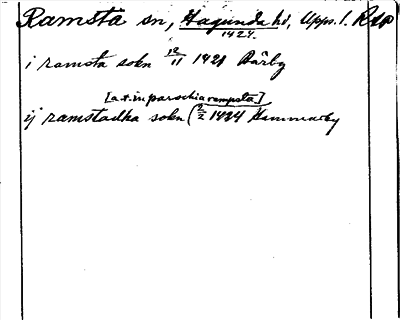 Ramsta sn, Hagunda hd, Upps. l. RAP
1424.
i ramsta sokn 12/11 1421 Bärby
[a.t. in parochia rampsta]
ij ramstadha sokn (2/2 1424 Hammarby